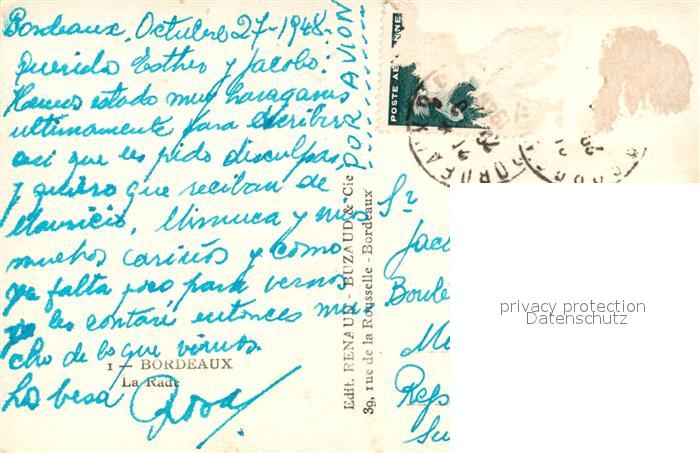 Bordeaux, Octubre 27-1948-
Querido Esther y Jacobo:
Hemos estado muy haraganes
ultimamente para escribir
asi que les pido disculpas
y quiero que reciban de
Mauricio, Mimuca y mios
muchos cariños y como
ya falta poco para vernos
les contaré entonces mu-
cho de lo que vimos.
1 — BORDEAUX
La Rade
Los besa Rosa
POR AVION
Edit. RENAUD - BUZAUD & Cie
39, rue de la Rousselle - Bordeaux
POSTE AE NNE
BORDEAUX
Sr
Jac
Boule
Rep
Su
privacy protection
Datenschutz